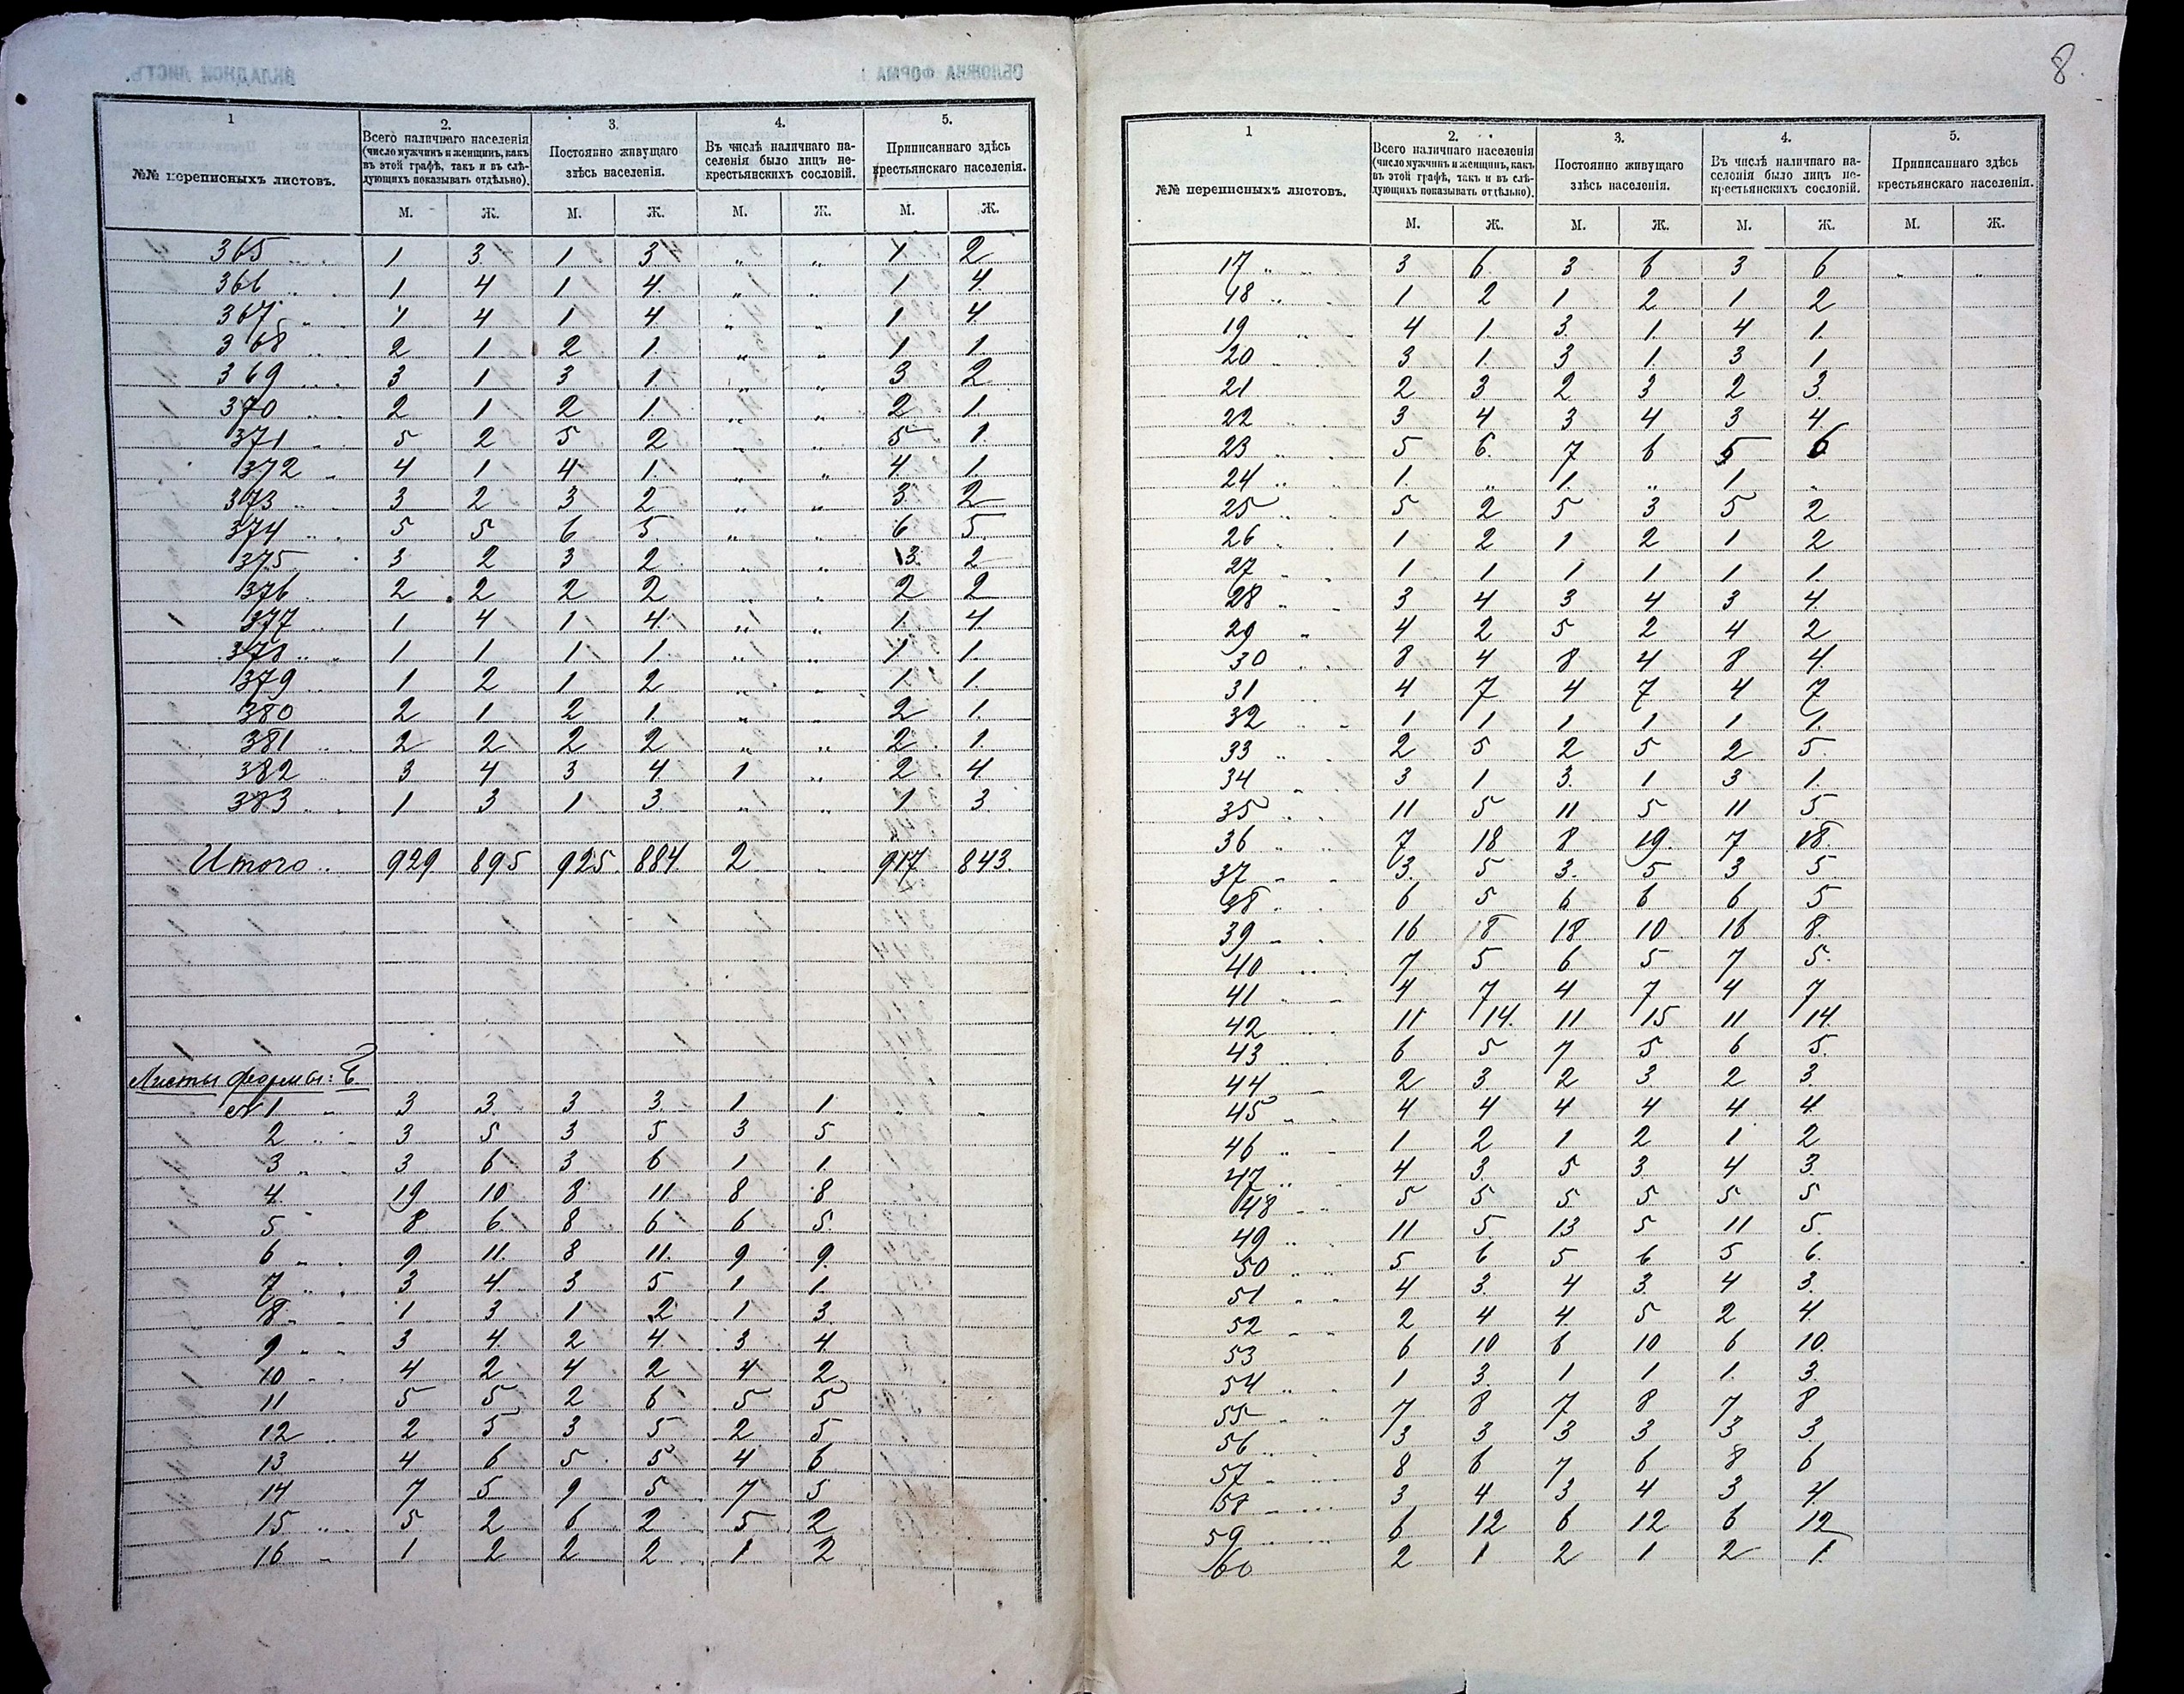 8.
1 2. 3. 4. 5.
№№ переписныхъ листовъ. Всего наличнаго населенія (число мужчинъ и женщинъ, какъ въ этой графѣ, такъ и въ слѣдующихъ показывать отдѣльно). Постоянно живущаго здѣсь населенія. Въ числѣ наличнаго населенія было лицъ некрестьянскихъ сословій. Приписаннаго здѣсь крестьянскаго населенія.
М. Ж. М. Ж. М. Ж. М. Ж.
365 1 3 1 3 „ „ 1 2
366 1 4 1 4 „ „ 1 4
367 1 4 1 4 „ „ 1 4
368 2 1 2 1 „ „ 1 1
369 3 1 3 1 „ „ 3 2
370 2 1 2 1 „ „ 2 1
371 5 2 5 2 „ „ 5 1
372 4 1 4 1 „ „ 4 1
373 3 2 3 2 „ „ 3 2
374 5 5 6 5 „ „ 6 5
375 3 2 3 2 „ „ 3 2
376 2 2 2 2 „ „ 2 2
377 1 4 1 4 „ „ 1 4
378 1 1 1 1 „ „ 1 1
379 1 2 1 2 „ „ 1 1
380 2 1 2 1 „ „ 2 1
381 2 2 2 2 „ „ 2 1
382 3 4 3 4 1 „ 2 4
383 1 3 1 3 „ „ 1 3
Итого 929 895 925 884 2 „ 917 843
Листы формы: Б
№ 1 3 3 3 3 1 1 „ „
2 3 5 3 5 3 5
3 3 6 3 6 1 1
4 19 10 8 11 8 8
5 8 6 8 6 6 5
6 9 11 8 11 9 9
7 3 4 3 5 1 1
8 1 3 1 2 1 3
9 3 4 2 4 3 4
10 4 2 4 2 4 2
11 5 5 2 6 5 5
12 2 5 3 5 2 5
13 4 6 5 5 4 6
14 7 5 9 5 7 5
15 5 2 6 2 5 2
16 1 2 2 2 1 2
1 2. 3. 4. 5.
№№ переписныхъ листовъ. Всего наличнаго населенія (число мужчинъ и женщинъ, какъ въ этой графѣ, такъ и въ слѣдующихъ показывать отдѣльно). Постоянно живущаго здѣсь населенія. Въ числѣ наличнаго населенія было лицъ некрестьянскихъ сословій. Приписаннаго здѣсь крестьянскаго населенія.
М. Ж. М. Ж. М. Ж. М. Ж.
17 3 6 3 6 3 6 „ „
18 1 2 1 2 1 2
19 4 1 3 1 4 1
20 3 1 3 1 3 1
21 2 3 2 3 2 3
22 3 4 3 4 3 4
23 5 6 7 6 5 6
24 1 „ 1 „ 1 „
25 5 2 5 3 5 2
26 1 2 1 2 1 2
27 1 1 1 1 1 1
28 3 4 3 4 3 4
29 4 2 5 2 4 2
30 8 4 8 4 8 4
31 4 7 4 7 4 7
32 1 1 1 1 1 1
33 2 5 2 5 2 5
34 3 1 3 1 3 1
35 11 5 11 5 11 5
36 7 18 8 19 7 18
37 3 5 3 5 3 5
38 6 5 6 6 6 5
39 16 8 18 10 16 8
40 7 5 6 5 7 5
41 4 7 4 7 4 7
42 11 14 11 15 11 14
43 6 5 7 5 6 5
44 2 3 2 3 2 3
45 4 4 4 4 4 4
46 1 2 1 2 1 2
47 4 3 5 3 4 3
48 5 5 5 5 5 5
49 11 5 13 5 11 5
50 5 6 5 6 5 6
51 4 3 4 3 4 3
52 2 4 4 5 2 4
53 6 10 6 10 6 10
54 1 3 1 1 1 3
55 7 8 7 8 7 8
56 3 3 3 3 3 3
57 8 6 7 6 8 6
58 3 4 3 4 3 4
59 6 12 6 12 6 12
60 2 1 2 1 2 1